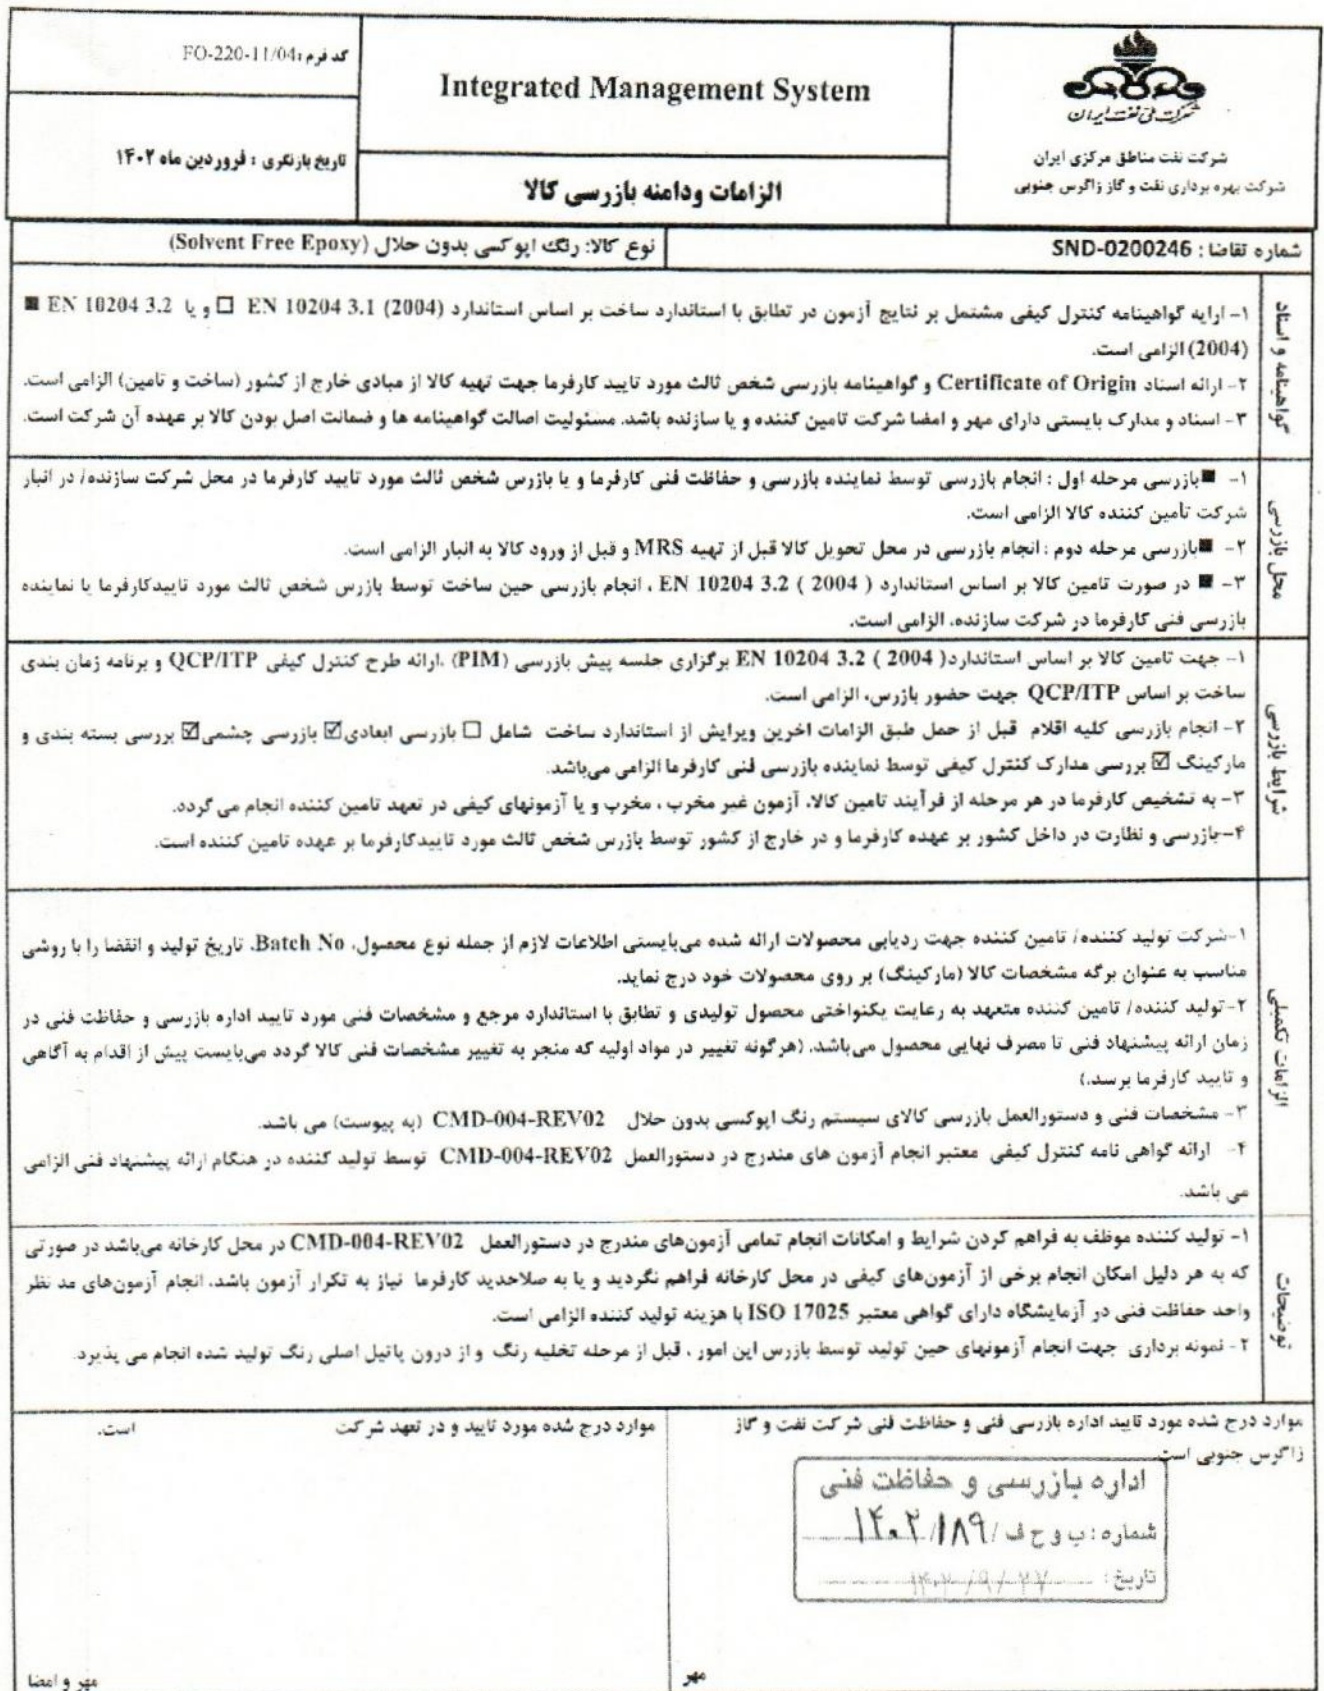 کد فرم: FO-220-11/04
تاریخ بازنگری : فروردین ماه ۱۴۰۲
Integrated Management System
الزامات ودامنه بازرسی کالا
شرکت ملی نفت ایران
شرکت نفت مناطق مرکزی ایران
شرکت بهره برداری نفت و گاز زاگرس جنوبی
شماره تقاضا : SND-0200246
نوع کالا: رنگ اپوکسی بدون حلال (Solvent Free Epoxy)
گواهینامه و اسناد
۱- ارایه گواهینامه کنترل کیفی مشتمل بر نتایج آزمون در تطابق با استاندارد ساخت بر اساس استاندارد EN 10204 3.1 (2004) ☐ و یا EN 10204 3.2 ■
(2004) الزامی است.
۲- ارائه اسناد Certificate of Origin و گواهینامه بازرسی شخص ثالث مورد تایید کارفرما جهت تهیه کالا از مبادی خارج از کشور (ساخت و تامین) الزامی است.
۳- اسناد و مدارک بایستی دارای مهر و امضا شرکت تامین کننده و یا سازنده باشد. مسئولیت اصالت گواهینامه ها و ضمانت اصل بودن کالا بر عهده آن شرکت است.
محل بازرسی
۱- ■بازرسی مرحله اول : انجام بازرسی توسط نماینده بازرسی و حفاظت فنی کارفرما و یا بازرس شخص ثالث مورد تایید کارفرما در محل شرکت سازنده/ در انبار
شرکت تأمین کننده کالا الزامی است.
۲- ■بازرسی مرحله دوم : انجام بازرسی در محل تحویل کالا قبل از تهیه MRS و قبل از ورود کالا به انبار الزامی است.
۳- ■ در صورت تامین کالا بر اساس استاندارد EN 10204 3.2 ( 2004 ) ، انجام بازرسی حین ساخت توسط بازرس شخص ثالث مورد تاییدکارفرما یا نماینده
بازرسی فنی کارفرما در شرکت سازنده، الزامی است.
شرایط بازرسی
۱- جهت تامین کالا بر اساس استاندارد EN 10204 3.2 ( 2004 ) برگزاری جلسه پیش بازرسی (PIM) ،ارائه طرح کنترل کیفی QCP/ITP و برنامه زمان بندی
ساخت بر اساس QCP/ITP جهت حضور بازرس، الزامی است.
۲- انجام بازرسی کلیه اقلام قبل از حمل طبق الزامات اخرین ویرایش از استاندارد ساخت شامل ☐ بازرسی ابعادی☑ بازرسی چشمی☑ بررسی بسته بندی و
مارکینگ ☑ بررسی مدارک کنترل کیفی توسط نماینده بازرسی فنی کارفرما الزامی می‌باشد.
۳- به تشخیص کارفرما در هر مرحله از فرآیند تامین کالا، آزمون غیر مخرب ، مخرب و یا آزمونهای کیفی در تعهد تامین کننده انجام می گردد.
۴-بازرسی و نظارت در داخل کشور بر عهده کارفرما و در خارج از کشور توسط بازرس شخص ثالث مورد تاییدکارفرما بر عهده تامین کننده است.
الزامات تکمیلی
۱-شرکت تولید کننده/ تامین کننده جهت ردیابی محصولات ارائه شده می‌بایستی اطلاعات لازم از جمله نوع محصول، Batch No، تاریخ تولید و انقضا را با روشی
مناسب به عنوان برگه مشخصات کالا (مارکینگ) بر روی محصولات خود درج نماید.
۲-تولید کننده/ تامین کننده متعهد به رعایت یکنواختی محصول تولیدی و تطابق با استاندارد مرجع و مشخصات فنی مورد تایید اداره بازرسی و حفاظت فنی در
زمان ارائه پیشنهاد فنی تا مصرف نهایی محصول می‌باشد. (هرگونه تغییر در مواد اولیه که منجر به تغییر مشخصات فنی کالا گردد می‌بایست پیش از اقدام به آگاهی
و تایید کارفرما برسد.)
۳- مشخصات فنی و دستورالعمل بازرسی کالای سیستم رنگ اپوکسی بدون حلال CMD-004-REV02 (به پیوست) می باشد.
۴- ارائه گواهی نامه کنترل کیفی معتبر انجام آزمون های مندرج در دستورالعمل CMD-004-REV02 توسط تولید کننده در هنگام ارائه پیشنهاد فنی الزامی
می باشد.
توضیحات
۱- تولید کننده موظف به فراهم کردن شرایط و امکانات انجام تمامی آزمون‌های مندرج در دستورالعمل CMD-004-REV02 در محل کارخانه می‌باشد در صورتی
که به هر دلیل امکان انجام برخی از آزمون‌های کیفی در محل کارخانه فراهم نگردید و یا به صلاحدید کارفرما نیاز به تکرار آزمون باشد، انجام آزمون‌های مد نظر
واحد حفاظت فنی در آزمایشگاه دارای گواهی معتبر ISO 17025 با هزینه تولید کننده الزامی است.
۲- نمونه برداری جهت انجام آزمونهای حین تولید توسط بازرس این امور ، قبل از مرحله تخلیه رنگ و از درون پاتیل اصلی رنگ تولید شده انجام می پذیرد.
موارد درج شده مورد تایید اداره بازرسی فنی و حفاظت فنی شرکت نفت و گاز
زاگرس جنوبی است.
اداره بازرسی و حفاظت فنی
شماره : ب و ح ف /۱۸۹/ ۱۴۰۲
تاریخ : ۱۴۰۲/۹/۲۷
مهر
موارد درج شده مورد تایید و در تعهد شرکت است.
مهر و امضا